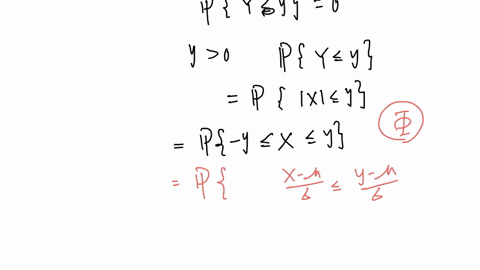 ℙ{ Y ≤ y} = 0
y > 0 ℙ{ Y ≤ y}
= ℙ { |X| ≤ y}
= ℙ{-y ≤ X ≤ y}
Φ
= ℙ{ (X-μ)/σ ≤ (y-μ)/σ